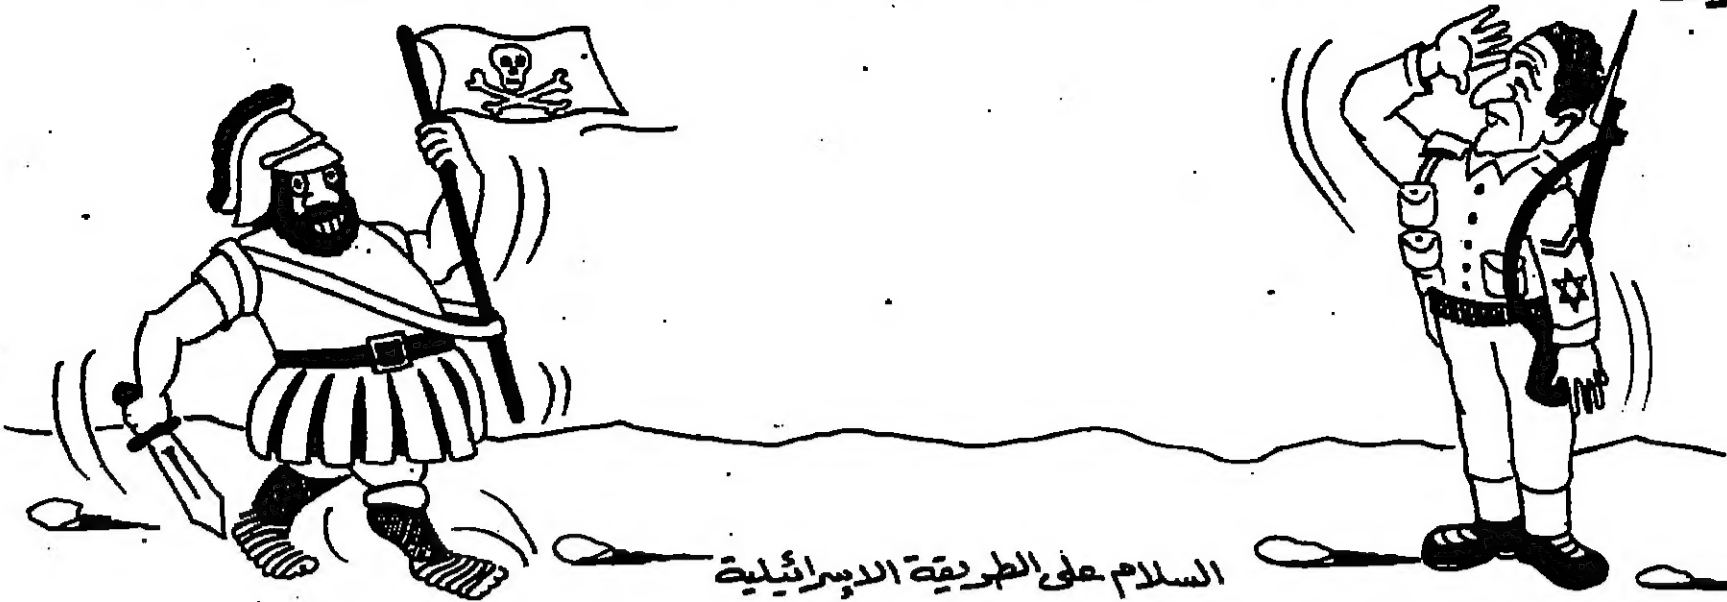 السلام على الطريقة الاسرائيلية